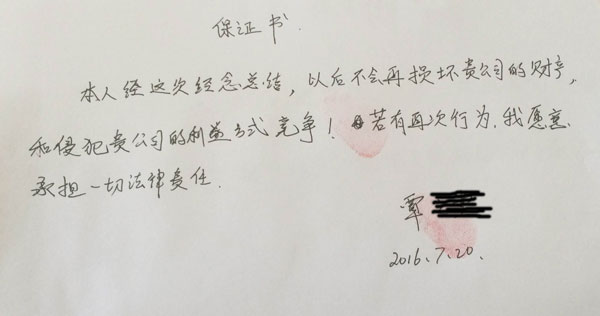 保证书.
本人经这次经念总结，以后不会再损坏贵公司的财产，
和侵犯贵公司的利益方式竞争！若有再次行为.我愿意
承担一切法律责任.
覃
2016.7.20.